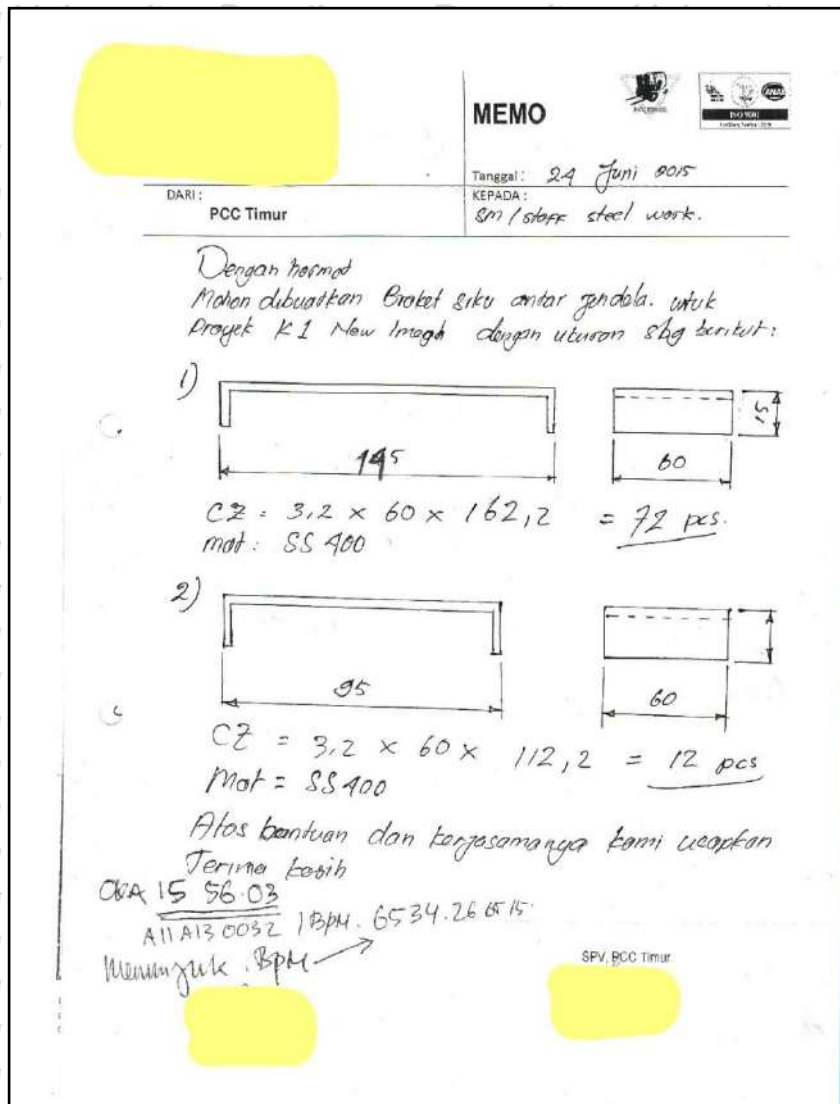 MEMO
ISO 9001
Tanggal : 24 Juni 2015
DARI :
PCC Timur
KEPADA :
SM / staff steel work.
Dengan hormat
Mohon dibuatkan Braket siku antar jendela. untuk
Proyek K1 New Image dengan ukuran sbg berikut:
1)
145
60
15
CZ = 3,2 × 60 × 162,2 = 72 pcs.
mat : SS 400
2)
95
60
CZ = 3,2 × 60 × 112,2 = 12 pcs
Mat = SS400
Atas bantuan dan kerjasamanya kami ucapkan
Terima kasih
15 56.03
A11A13 0032 / BPM. 6534.26
Menunjuk BPM
SPV, PCC Timur